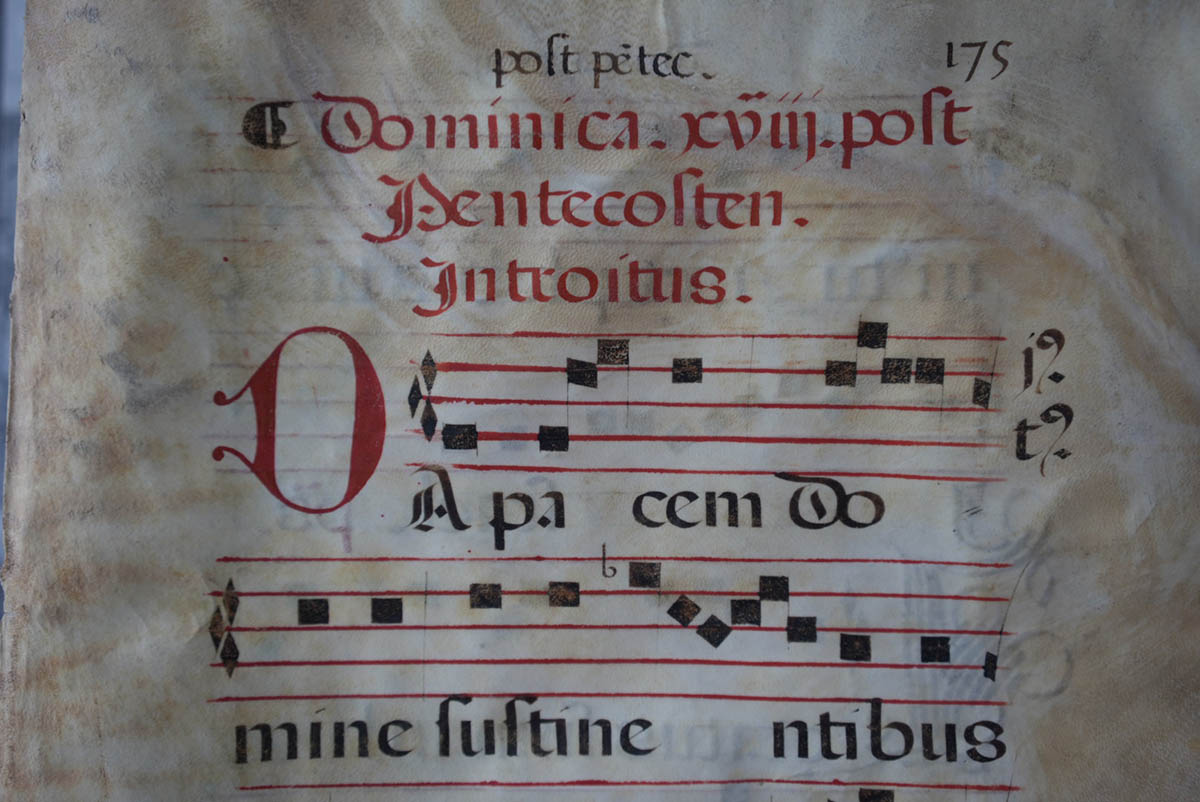 post pētec. 175
¶ Dominica. xviij. post
Pentecosten.
Introitus.
j?
t?
DA pa cem Do
b
mine sustine ntibus